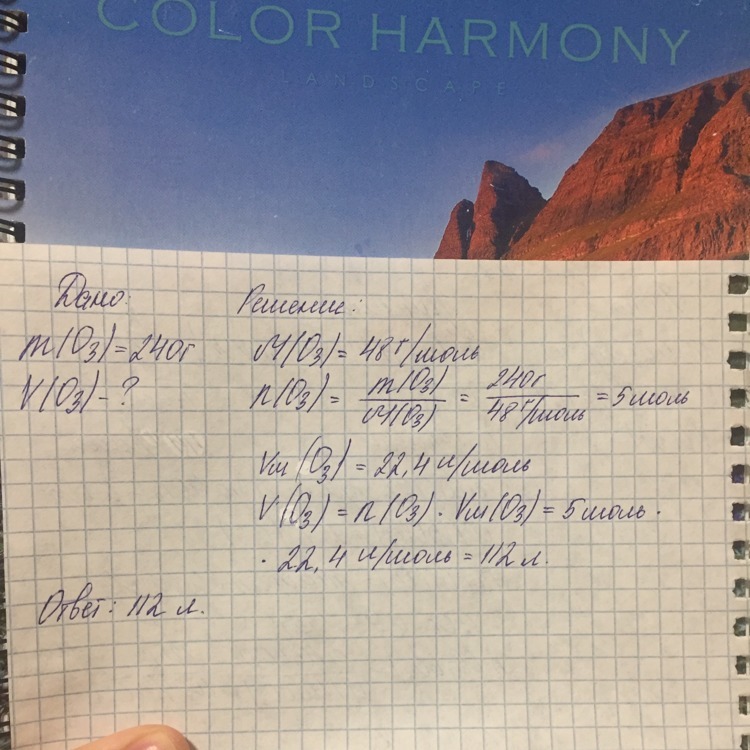 COLOR HARMONY
LANDSCAPE
Дано:
m(O₃)=240г
V(O₃)-?
Решение:
M(O₃)= 48г/моль
n(O₃)= m(O₃)/M(O₃) = 240г/48г/моль =5моль
Vм(O₃)=22,4 л/моль
V(O₃)=n(O₃)·Vм(O₃)=5моль·
·22,4 л/моль=112 л.
Ответ: 112 л.